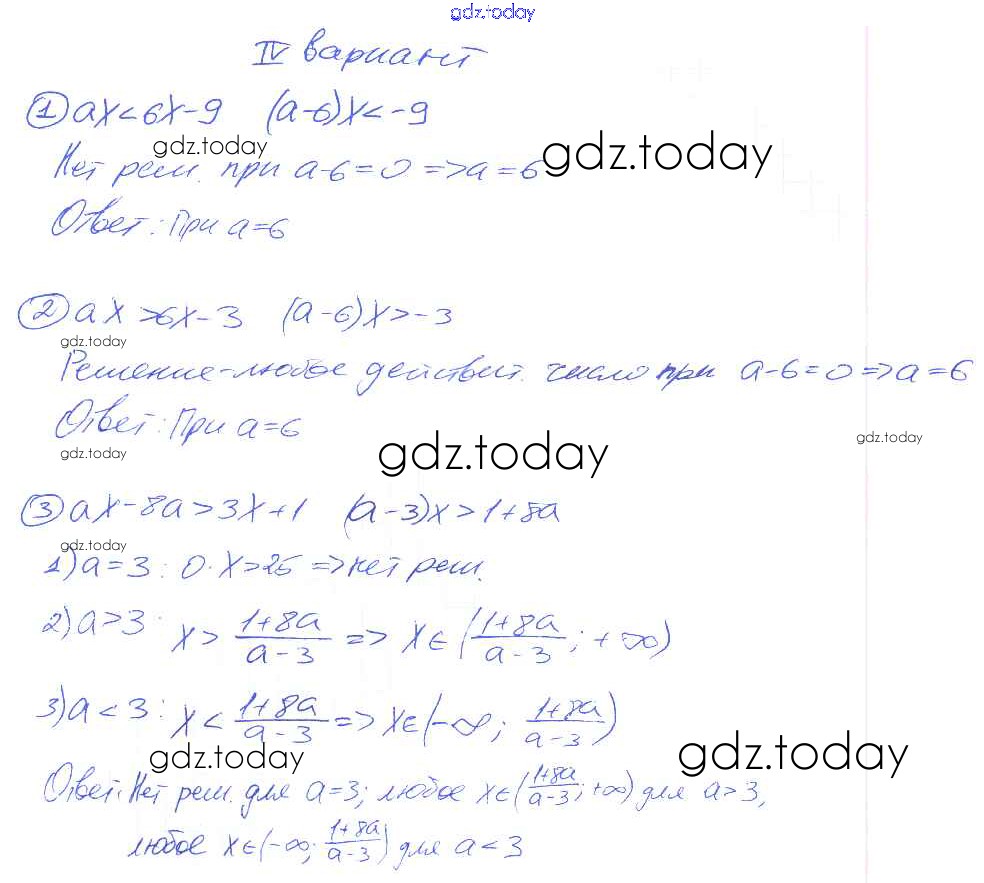 gdz.today
IV вариант
① ax<6x-9 (a-6)x<-9
gdz.today
gdz.today
Нет реш. при a-6=0=>a=6
Ответ: При a=6
② ax>6x-3 (a-6)x>-3
gdz.today
Решение-любое действит. число при a-6=0=>a=6
Ответ: При a=6
gdz.today
gdz.today
gdz.today
③ ax-8a>3x+1 (a-3)x>1+8a
gdz.today
1) a=3: 0·x>25=>нет реш.
2) a>3: x> (1+8a)/(a-3) => x∈((1+8a)/(a-3); +∞)
3) a<3: x< (1+8a)/(a-3) => x∈(-∞; (1+8a)/(a-3))
gdz.today
gdz.today
Ответ: Нет реш. для a=3; любое x∈((1+8a)/(a-3); +∞) для a>3,
любое x∈(-∞; (1+8a)/(a-3)) для a<3